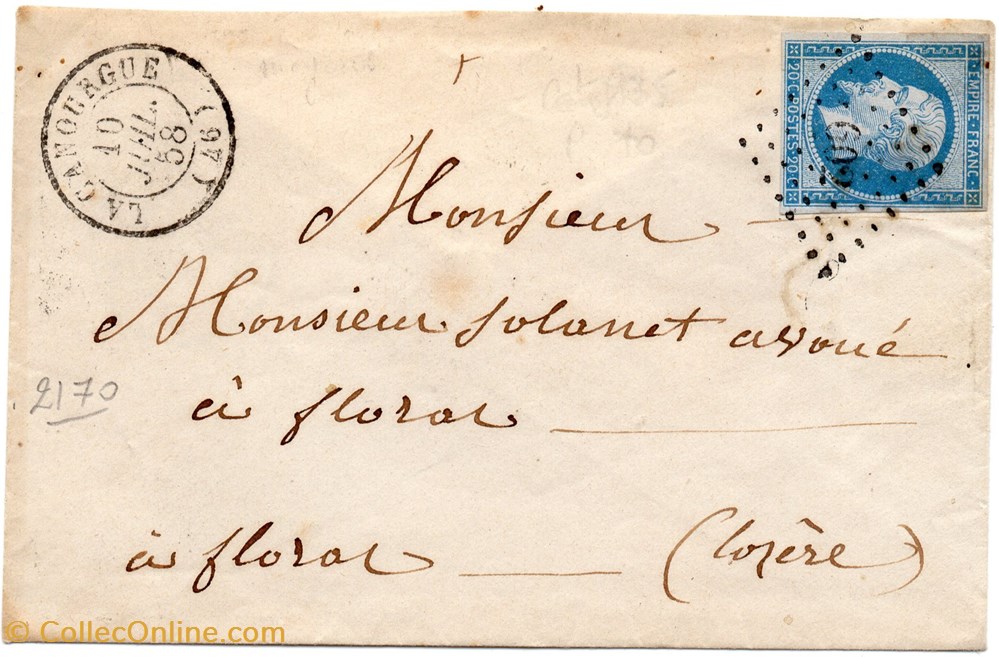 LA CANOURGUE (46)
10
JUIL.
58
EMPIRE·FRANC.
20·C·POSTES·20·C
Monsieur
Monsieur Solanet avoué
à florac
à florac (lozère)
2170
© CollecOnline.com